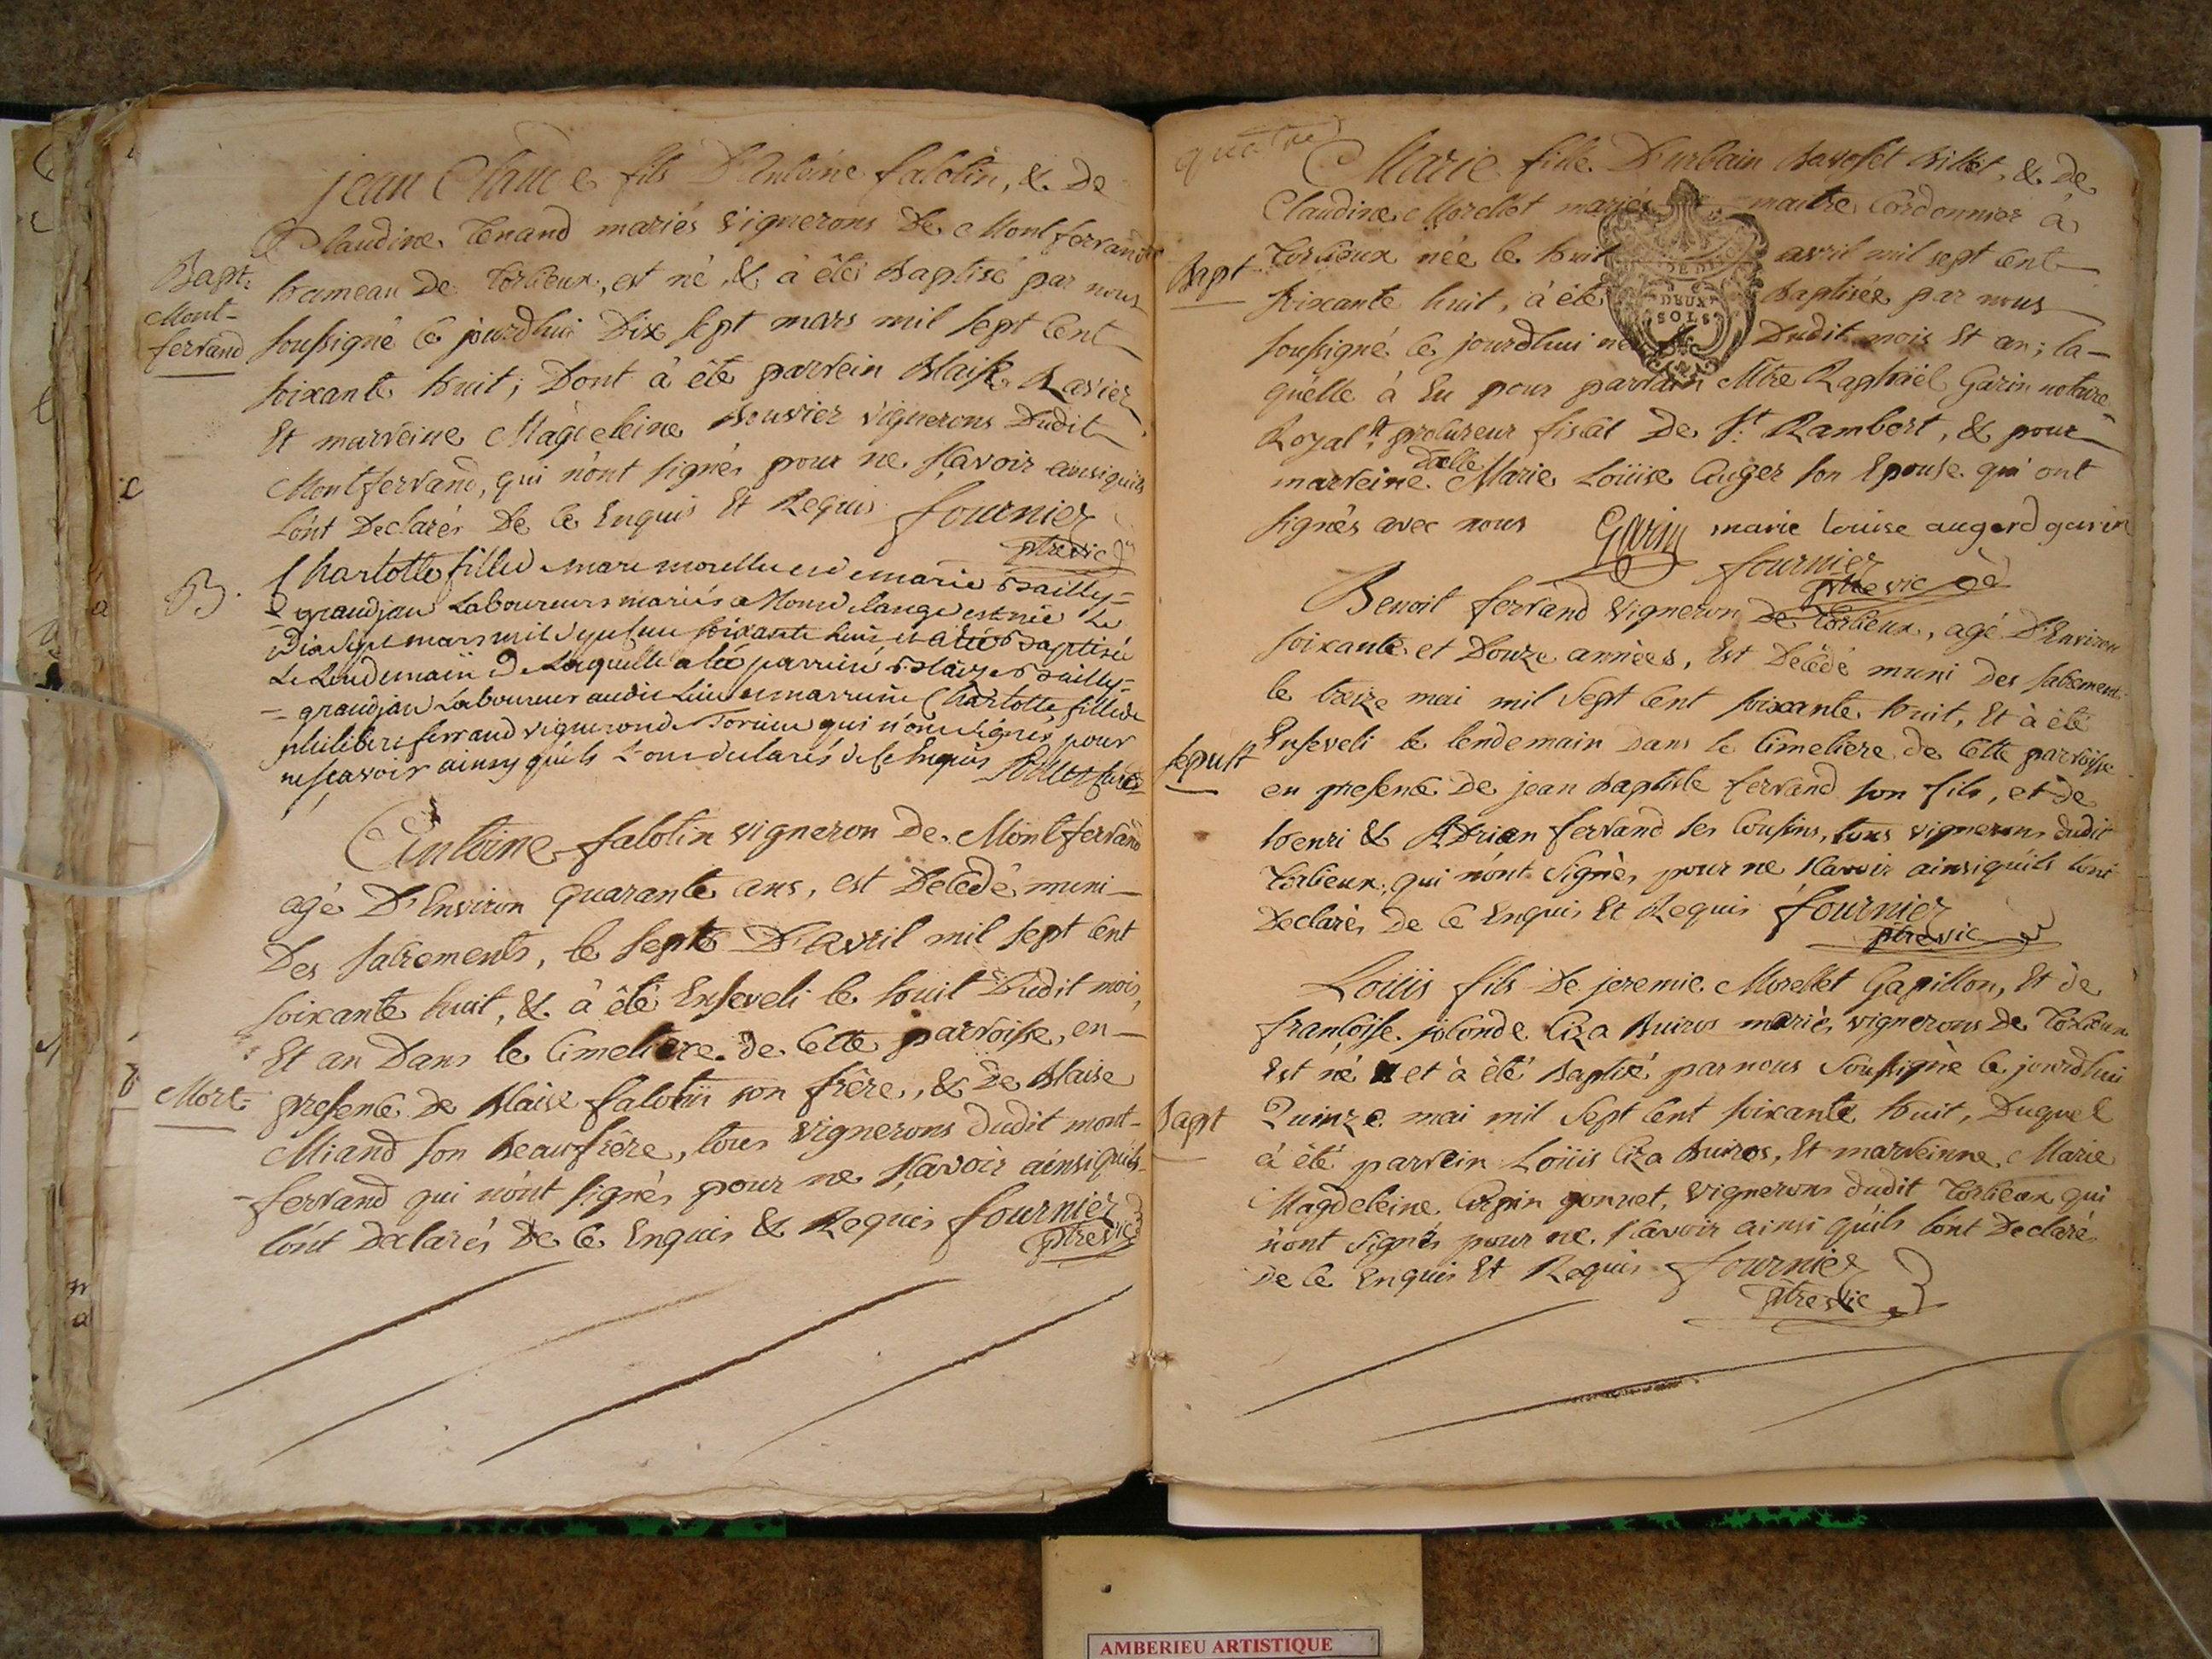 jean Claude fils D'Antoine falotin, & De
Claudine Tenand mariés vignerons De Montferrand
Bapt:
Mont-
ferrand
hameau De torcieux, est né & à été Baptisé par nous
soussigné ce jourdhui Dix sept mars mil sept cent
soixante huit; Dont à été parrein Blaise Ravier
Et marreine Magdeleine Bouvier vignerons Dudit
Montferrand, qui n'ont signés pour ne sçavoir ainsiquils
l'ont Declarés De ce Enquis Et Requis fournier
ptre vic
B.
Charlotte fille de marc morellet et de marie Bailly=
=grandjean Laboureurs mariés a est née Le
Dix sept mars mil sept cent soixante huit et a été Baptisée
Le Lendemain De Laquelle a été parrein Blaize Bailly=
=grandjean Laboureur audit Lieu et marreine Charlotte fille de
philibert ferrand vigneron de Torcieu qui n'ont signés pour
ne scavoir ainsy quils L'ont declarés de ce Enquis
Antoine falotin vigneron De Montferrand
agé D'Environ quarante ans, est Decédé muni
Des sacrements, le sept D'avril mil sept cent
soixante huit, & à été Enseveli le huit Dudit mois
Et an Dans le cimetiere de cette parroisse, en
Mort=
presence De Blaise falotin son frère, & De Blaise
Miand son Beaufrère, tous vignerons dudit mont-
-ferrand qui n'ont signés pour ne sçavoir ainsiquils
l'ont Declarés De ce Enquis & Requis fournier
ptre vic
quatre
Marie fille D'urbain Billet, & De
Claudine Morellet mariés maitre Cordonnier à
Bapt
Torcieux née le huit avril mil sept cent
soixante huit, à été Baptisée par nous
DEUX
SOLS
soussigné ce jourdhui neuf Dudit mois Et an; la-
quelle à Eu pour parrain Mtre Raphaël Garin notaire
Royal & procureur fiscal De St. Rambert, & pour
Delle
marreine Marie Loüise Auger son Epouse qui ont
signés avec nous Garin marie louise augerd garin
fournier
ptre vic
Benoit ferrand vigneron De Torcieux, agé D'Environ
soixante et Douze années, Est Decédé muni des sacrements
le treize mai mil sept cent soixante huit, Et à été
Sepult
Enseveli le lendemain Dans le cimetiere de cette parroisse
en presence De jean Baptiste ferrand son fils, et de
henri & Adrien ferrand ses cousins, tous vignerons dudit
Torcieux, qui n'ont signés pour ne sçavoir ainsiquils l'ont
Declarés De ce Enquis Et Requis fournier
ptre vic
Loüis fils De jeremie Morellet Gapillon, Et de
françoise joconde Ciza Buiros mariés vignerons De Torcieux
Est né et à été Baptisé par nous soussigné ce jourdhui
Bapt
Quinze mai mil sept cent soixante huit, Duquel
à été parrein Loüis Ciza Buiros, Et marreinne Marie
Magdeleine gonnet, vignerons dudit Torcieux qui
n'ont signés pour ne sçavoir ainsi quils l'ont Declaré
De ce Enquis Et Requis fournier
ptre vic
AMBERIEU ARTISTIQUE